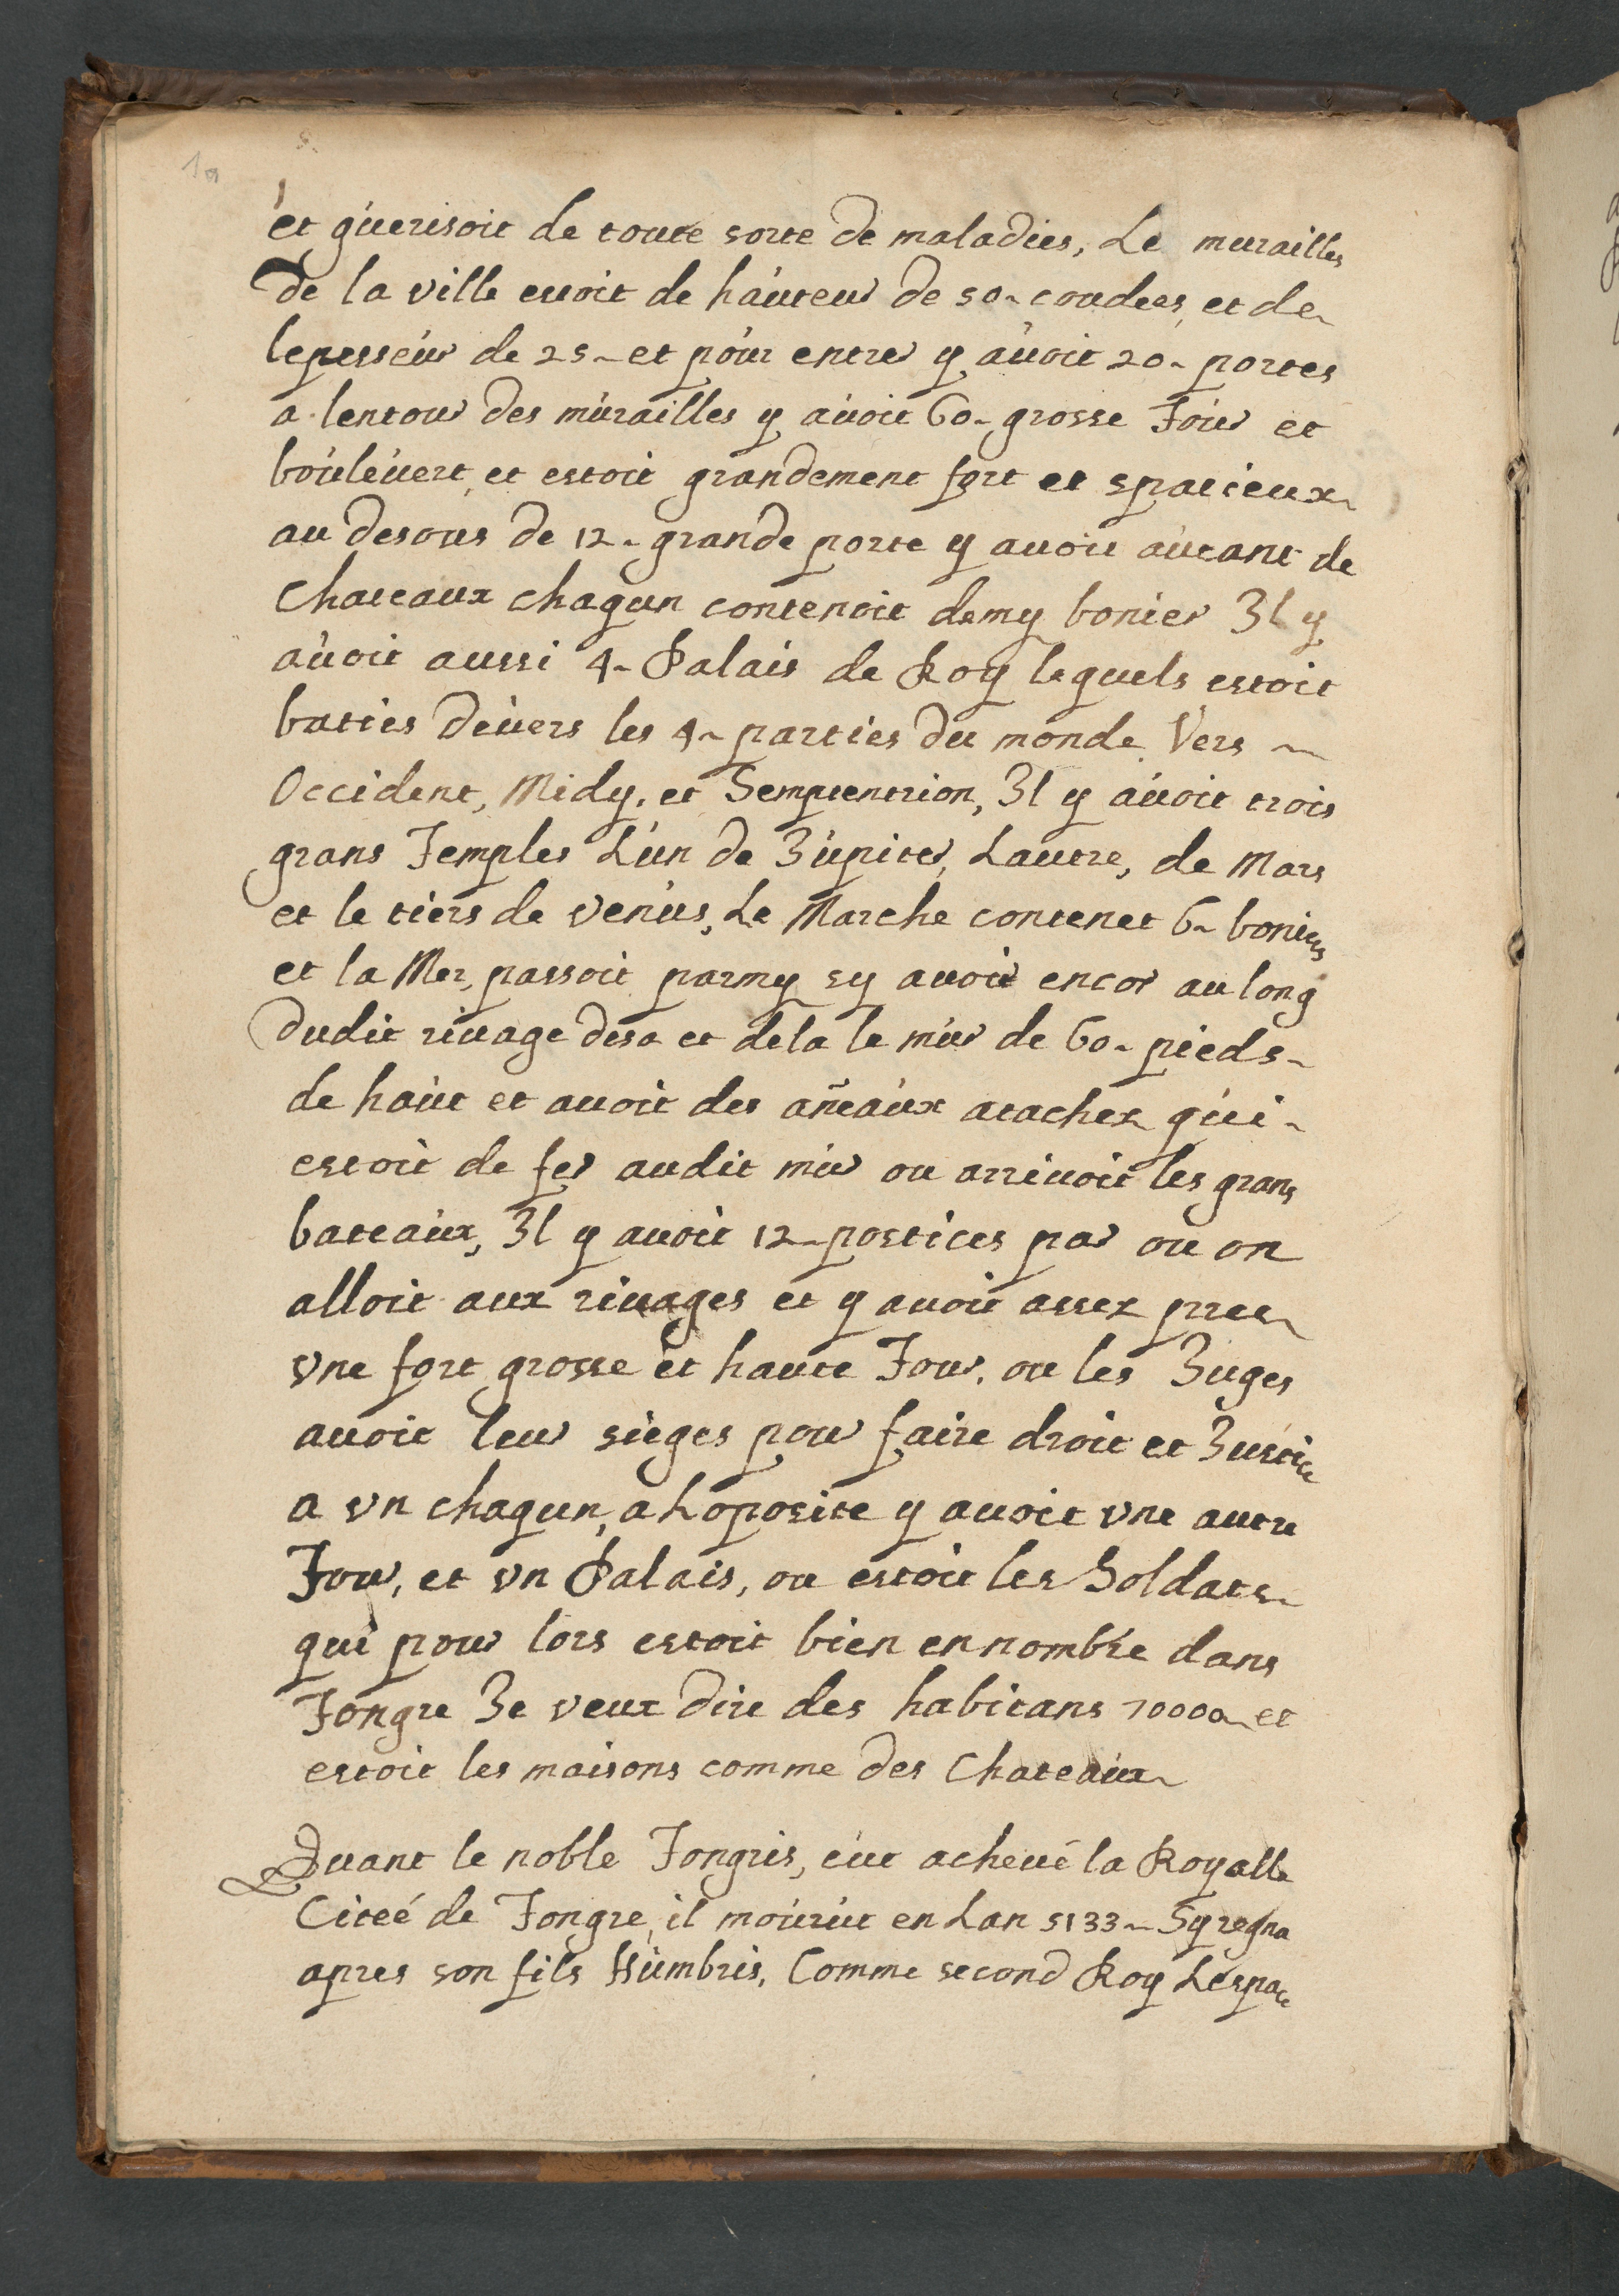 et guerisoit de toute sorte de maladies, Le murailles
de la ville euoit de hauteur de 50 coudees, et de
lepesseur de 25 et pour entrer y auoit 20 portes
a lentour des murailles y auoit 60 grosse Tour et
bouleuert, et estoit grandement fort et spatieux
au desous de 12 grande porte y auoit autant de
Chateaux chaqun contenoit demy bonier Il y
auoit aussi 4 Palais de Roy lequels estoit
baties deuers les 4 parties du monde Vers
Occident, Midy, et Semptentrion, Il y auoit trois
grans Temples L'un de Jupiter, Lautre, de Mars
et le tiers de venus, Le Marche contenet 6 boniers
et la Mer, passoit parmy sy auoit encor au long
dudit riuage desa et dela le mur de 60 pieds
de haut et auoit des añeaux atachez qui
estoit de fer audit mur ou arriuoit les grans
bateaux, Il y auoit 12 postices par ou on
alloit aux riuages et y auoit assez pree
vne fort grosse et haute Tour, ou les Juges
auoit leur sieges pour faire droit et Justice
a vn chaqun, a Loposite y auoit vne autre
Tour, et vn Palais, ou estoit les Soldats
qui pour lors estoit bien en nombre dans
Tongre Je veux dire des habitans 70000 et
estoit les maisons comme des Chateaux
Quant le noble Tongris, eut acheué la Royalle
Citeé de Tongre, il mourut en Lan 5133 Sy regna
apres son fils Humbris, Comme second Roy Lespace